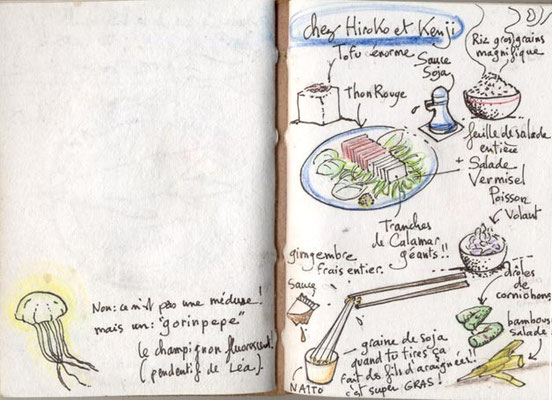 Non: ce n'est pas une méduse!
mais un: "gorinpepe"
le champignon fluorescent.
(pendentif de Léa).
chez Hiroko et Kenji
Tofu énorme
Sauce
Soja
Riz gros grains
magnifique
Thon Rouge
feuille de salade
entière
+
Salade
Vermisel
Poisson
Volant
Tranches
de Calamar
géants!!
gimgembre
frais entier.
Sauce
drôles
de
cornichons
bambous
salade
graine de soja
quand tu tires ça
fait des fils d'araignées!!
c'est super GRAS!
NATTO